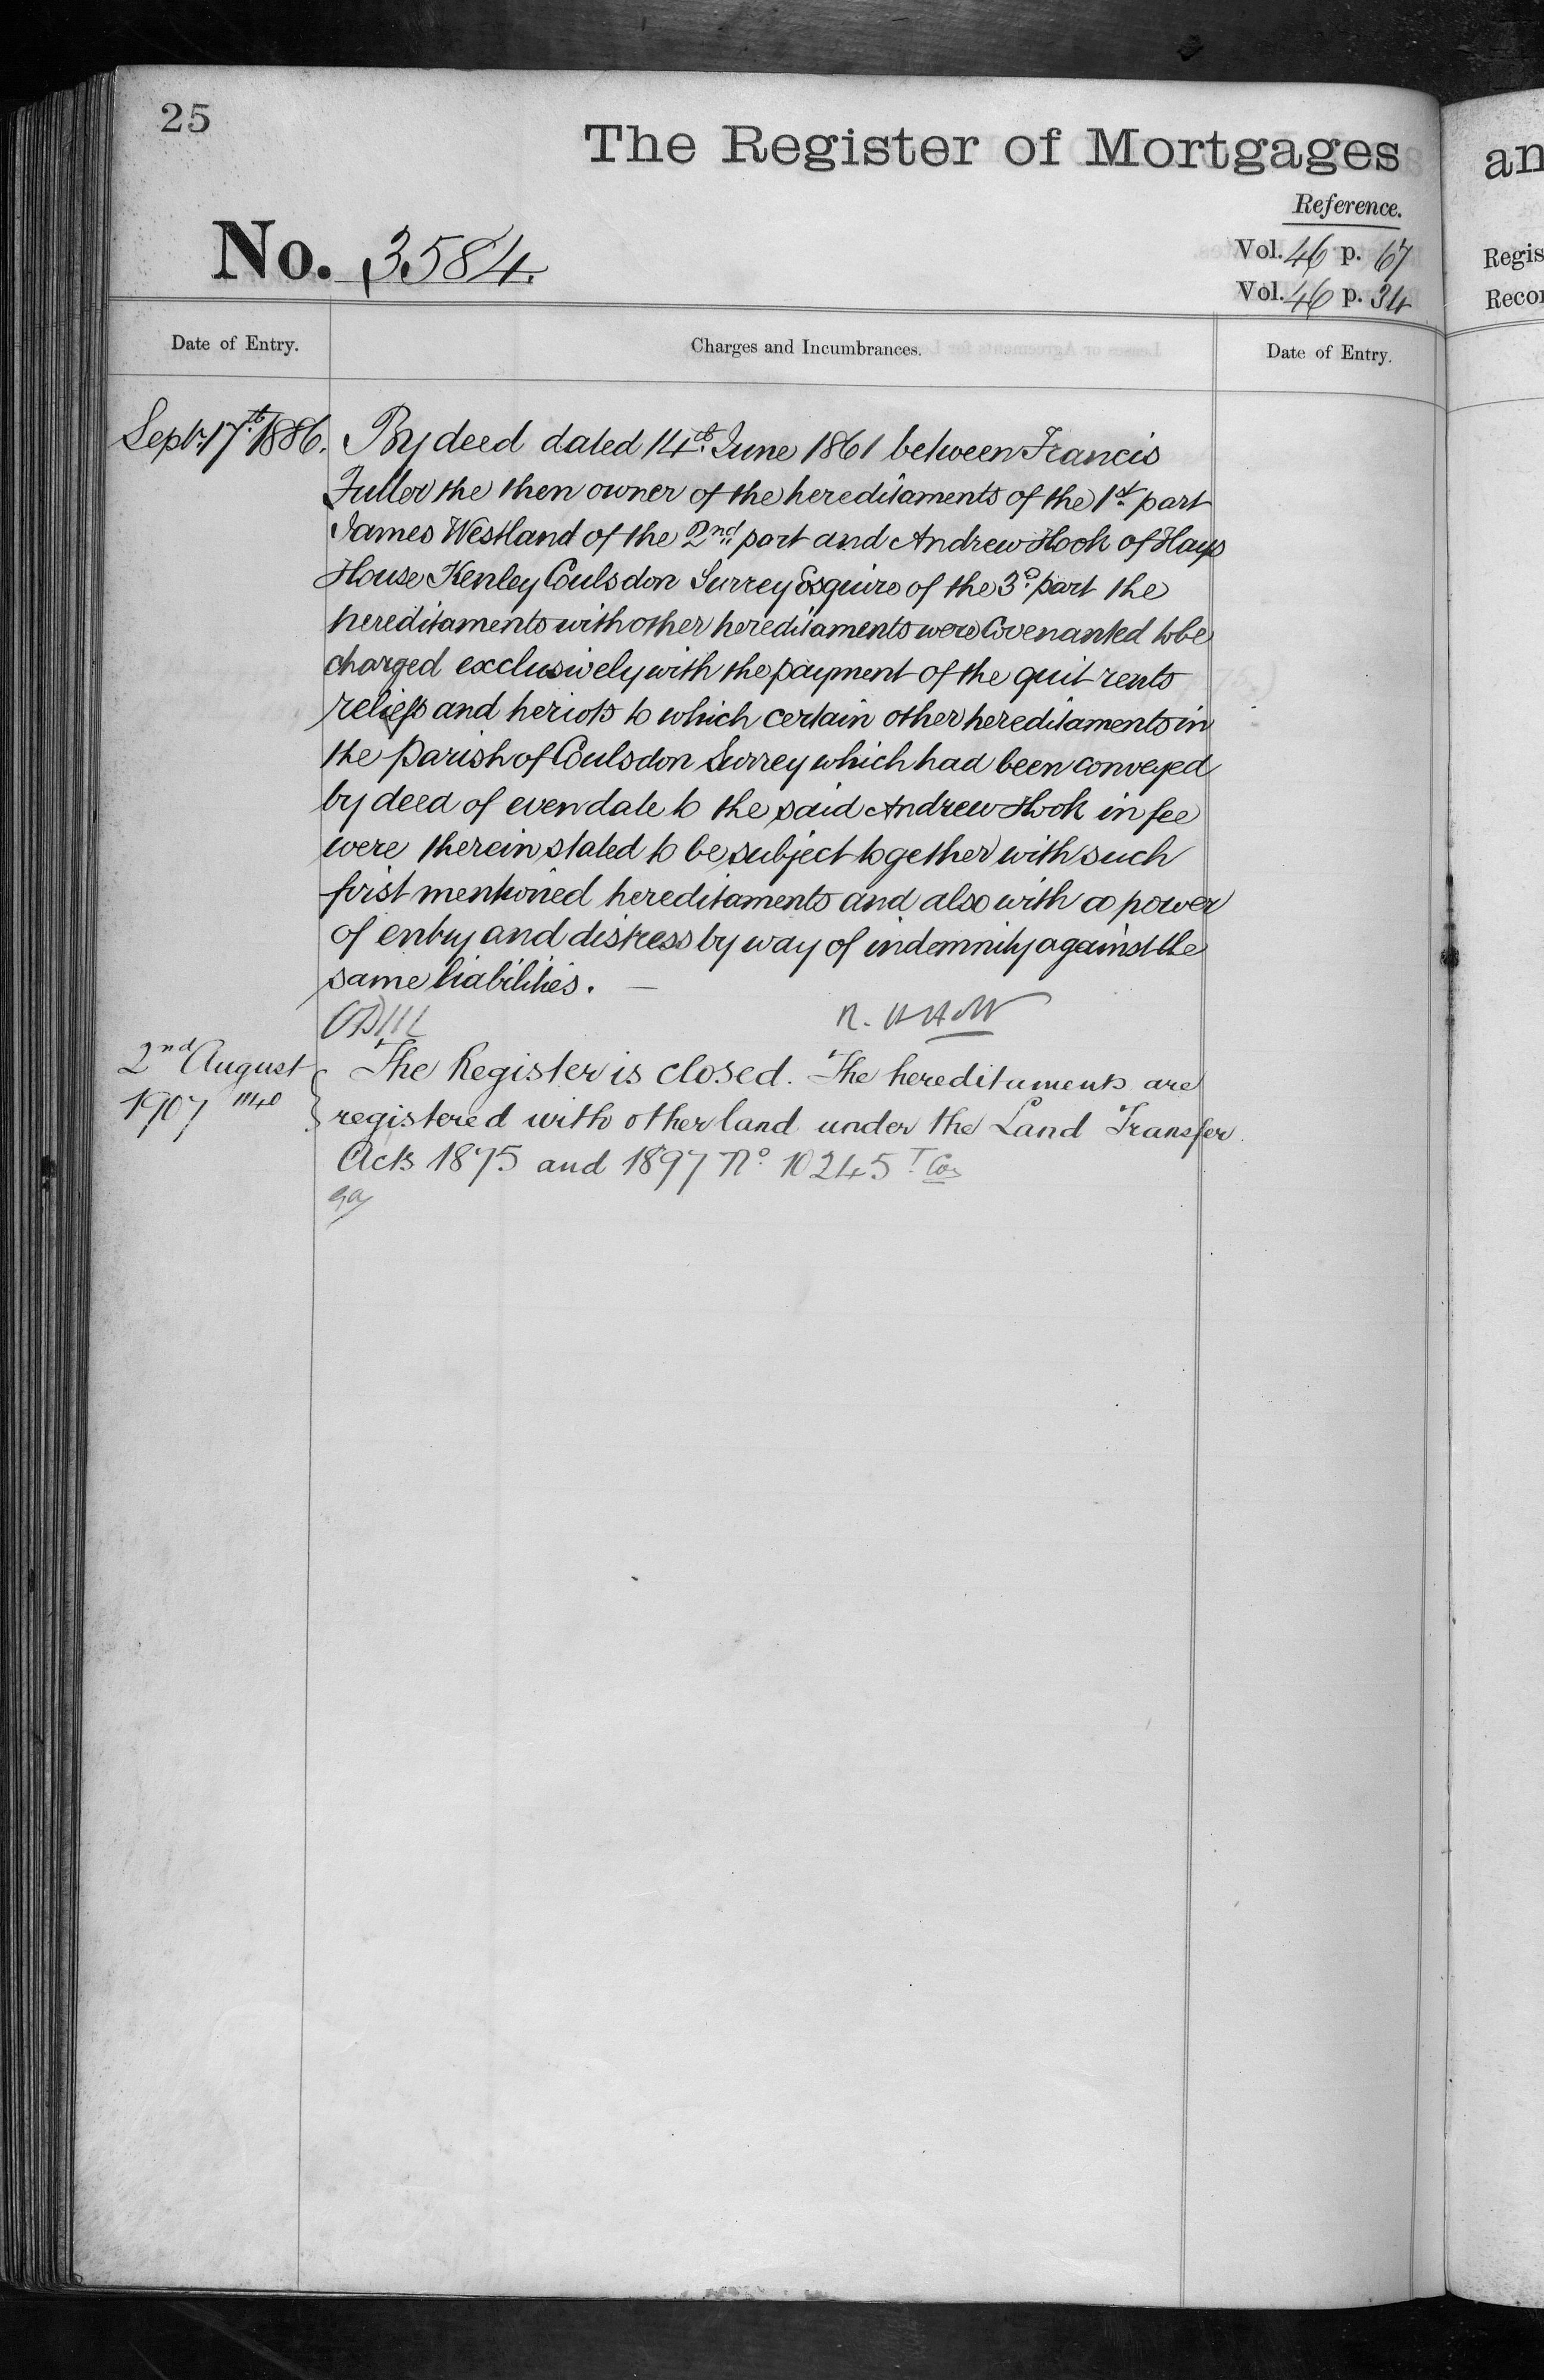 25
The Register of Mortgages
Reference.
No. 3584.
Vol. 46 p. 67
Vol. 46 p. 34
Date of Entry.
Charges and Incumbrances.
Date of Entry.
Septr. 17th 1886.
By deed dated 14th June 1861 between Francis
Fuller the then owner of the hereditaments of the 1st part
James Westland of the 2nd part and Andrew Hook of Hays
House Kenley Coulsdon Surrey Esquire of the 3d part the
hereditaments with other hereditaments were Covenanted to be
charged exclusively with the payment of the quit rents
reliefs and heriots to which certain other hereditaments in
the parish of Coulsdon Surrey which had been conveyed
by deed of even date to the said Andrew Hook in fee
were therein stated to be subject together with such
first mentioned hereditaments and also with a power
of entry and distress by way of indemnity against the
same liabilities.
2nd August
1907
The Register is closed. The hereditaments are
registered with other land under the Land Transfer
Acts 1875 and 1897 No. 10245
an
Regis
Recor